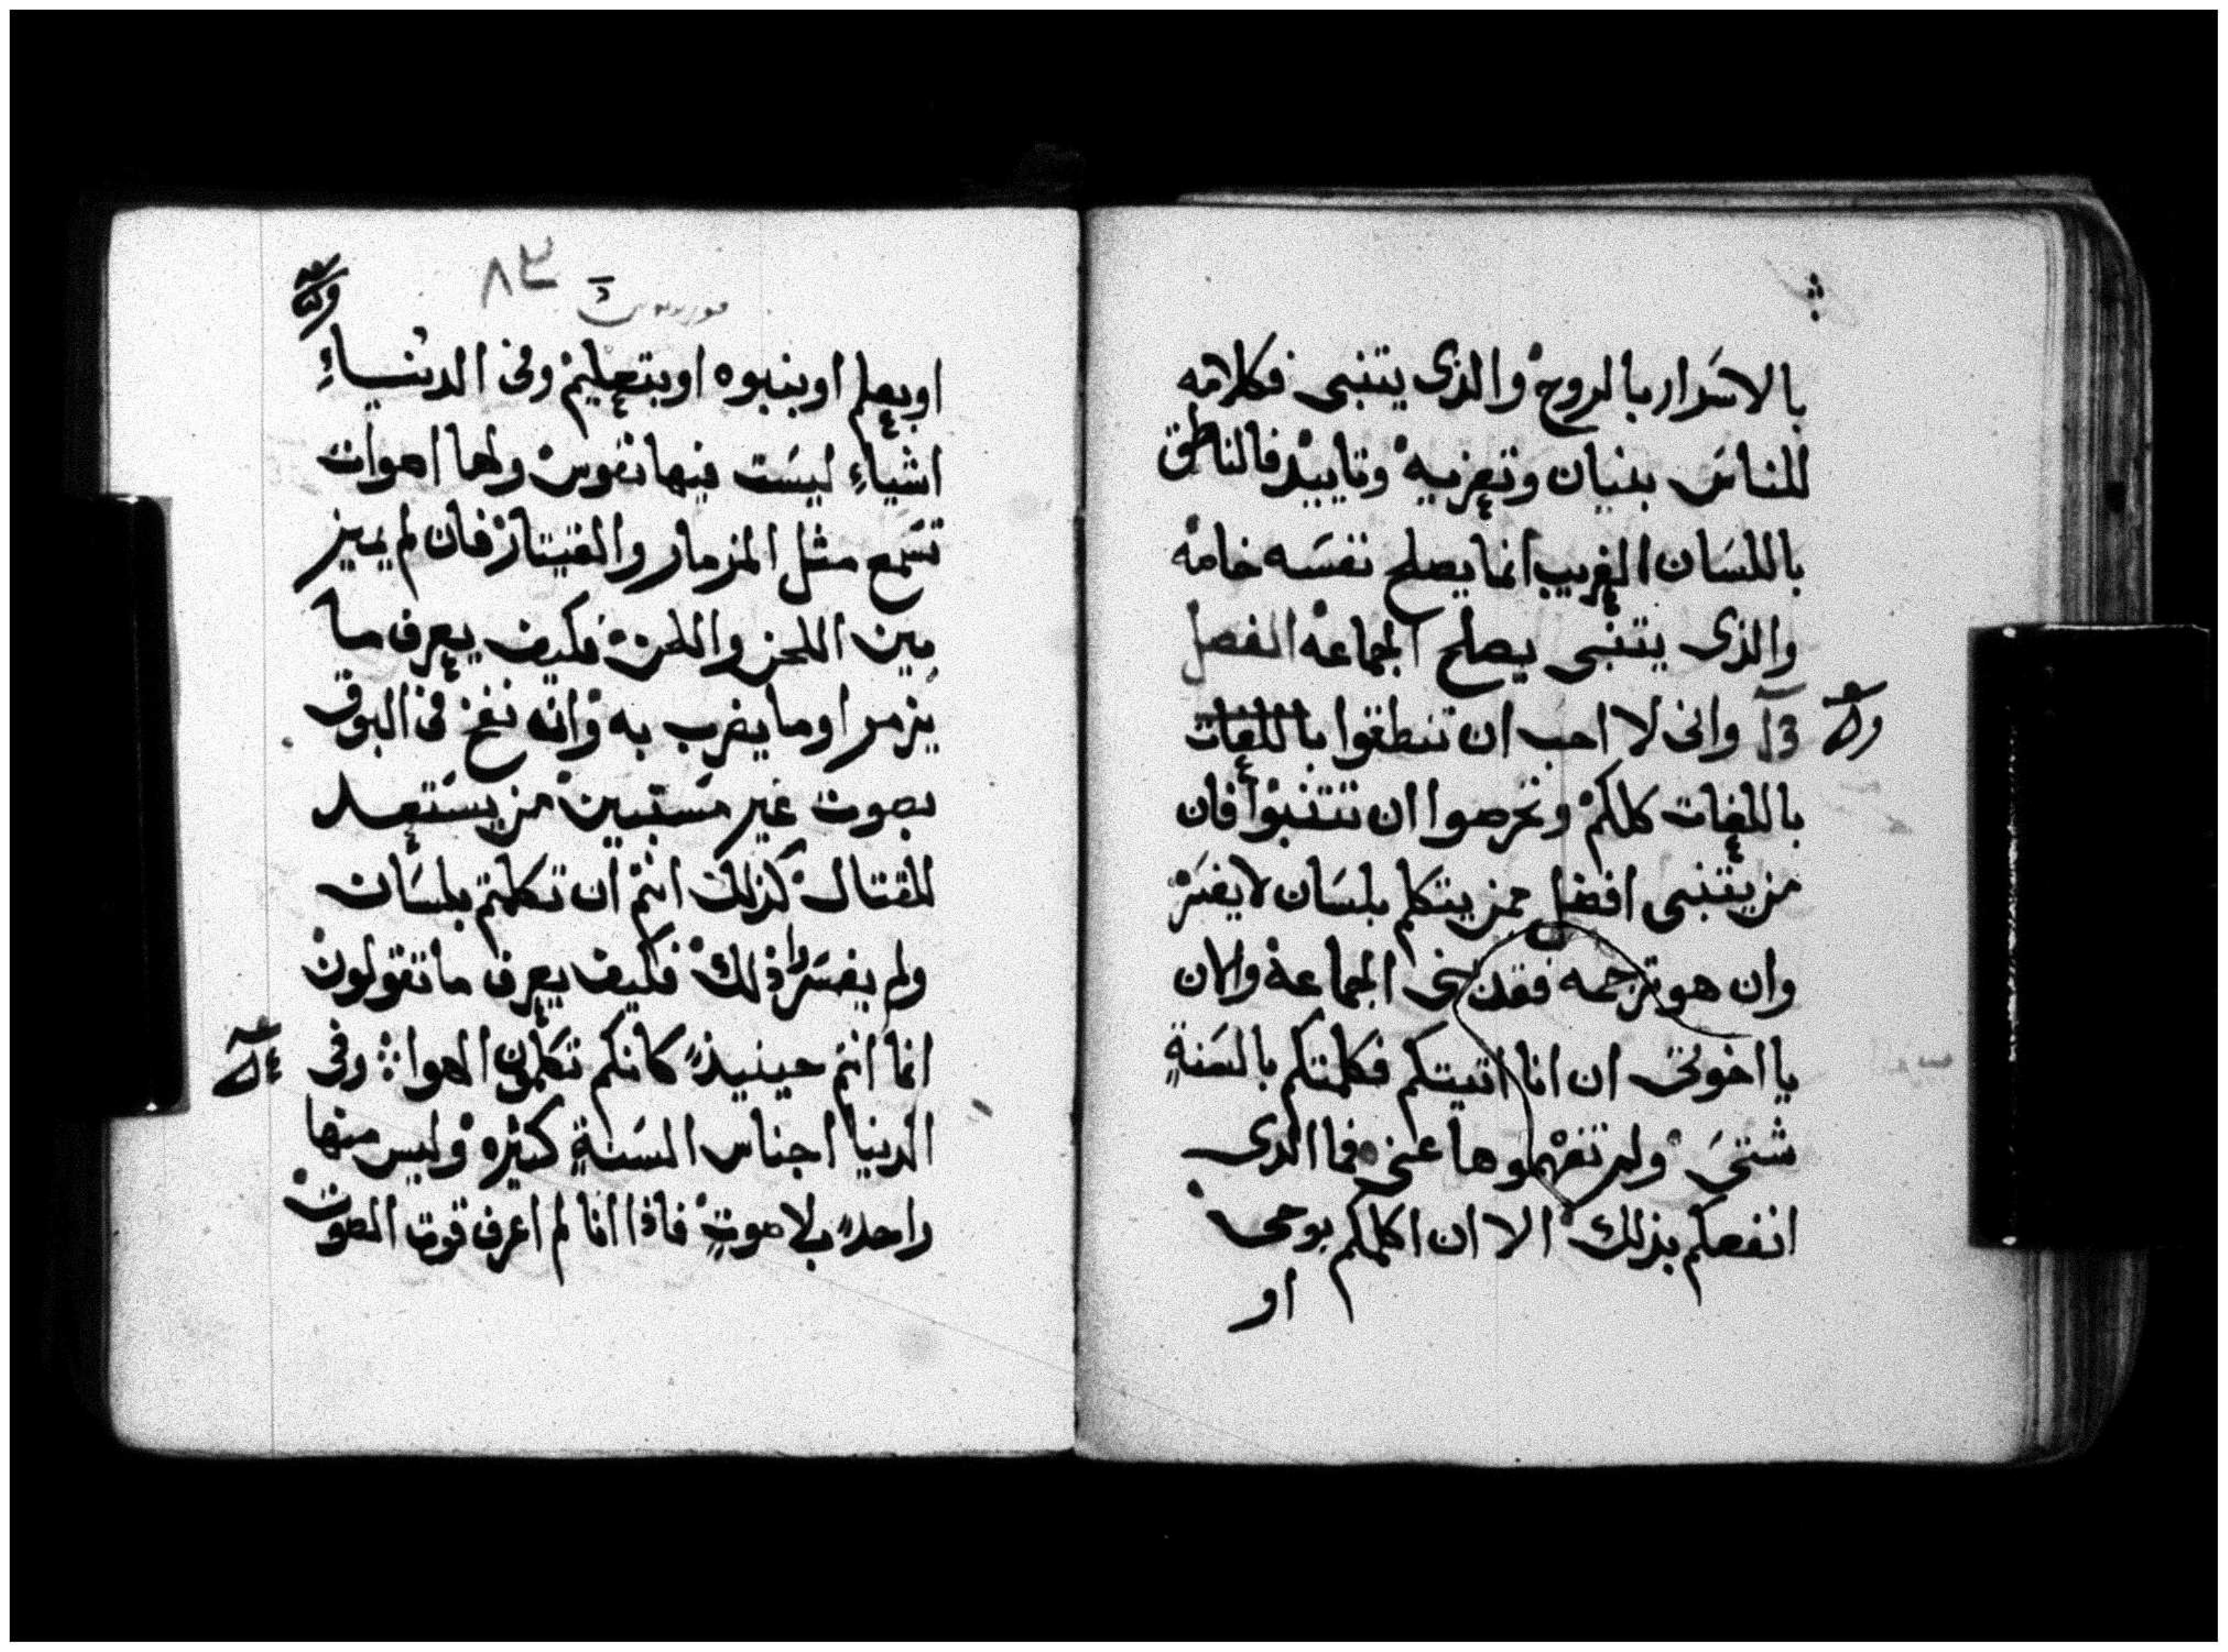 بالاسرار بالروح والذى يتنبى فكلامه
للناس بنيان وتعزيه وتاييد فالناطق
باللسان الغريب انما يصلح نفسه خاصه
والذى يتنبى يصلح الجماعه الفصل
وانى لا احب ان تنطقوا باللغات
باللغات كلكم وتحرصوا ان تتنبوا فان
من يتنبى افضل ممن يتكلم بلسان لا يفسر
وان هو ترجمه فقد بنى الجماعة والان
يا اخوتى ان انا اتيتكم فكلمتكم بالسنةٍ
شتى ولم تفهموها عنى فما الذى
انفعكم بذلك الا ان اكلمكم بوحى
او
٨٣
او بعلم او بنبوه او بتعليم وفى الدنياء
اشياء ليست فيها نفوس ولها اصوات
تسمع مثل المزمار والقيتار فان لم يميز
بين اللحن واللحن فكيف يعرف ما
يزمر او ما يضرب به وانه نفخ فى البوق
بصوت غير مستبين من يستعد
للقتال كذلك انتم ان تكلمتم بلسان
ولم يفسر ذلك فكيف يعرف ما تقولون
انما انتم حينيذٍ كانكم تكلمون الهوا وفى
الدنيا اجناس السنةٍ كثيره وليس منها
واحدً بلا صوتٍ فاذا انا لم اعرف قوت الصوت